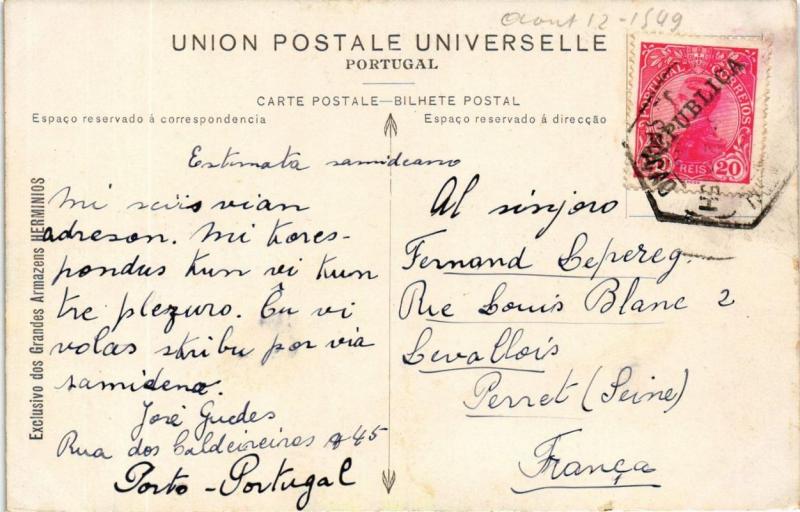 Aout 12-1549
UNION POSTALE UNIVERSELLE
PORTUGAL
CARTE POSTALE—BILHETE POSTAL
Espaço reservado á correspondencia
Espaço reservado á direcção
Estimata samideano
Mi sciis vian
adreson. Mi kores-
pondus kun vi kun
tre plezuro. Ĉu vi
volas skribu por via
samidena.
José Guedes
Rua dos Caldeireiros 45
Porto - Portugal
Al sinjoro
Fernand Lepereg.
Rue Louis Blanc 2
Levallois
Perret (Seine)
França
Exclusivo dos Grandes Armazens HERMINIOS
PORTUGAL CORREIOS
REPUBLICA
REIS 20